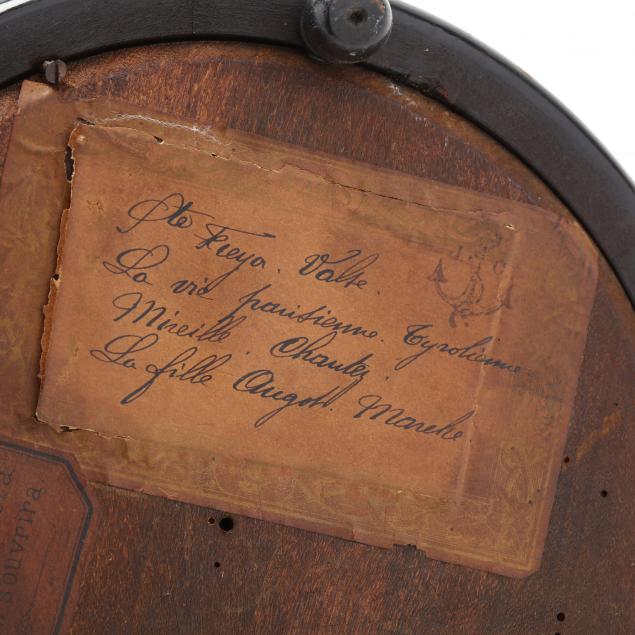 Pte Freya. Valse.
La vie parisienne. Tyrolienne.
Mireille. Chantez.
La fille Angot. Marche
ouvrira